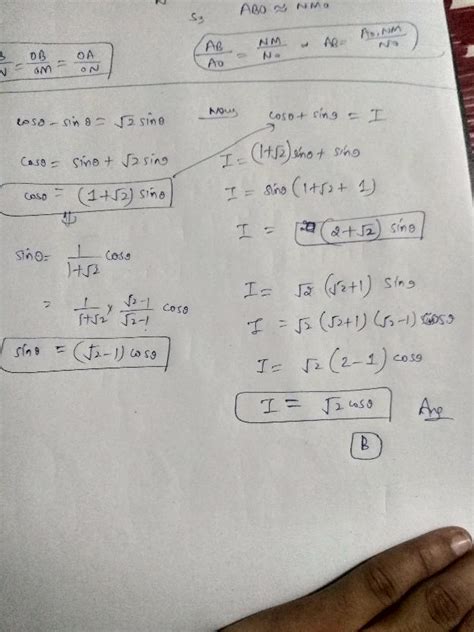 S3 ABO ≈ NMO
AB/AO = NM/NO ⇒ AB = AO.NM/NO
OB/OM = OA/ON
cosθ - sinθ = √2 sinθ
cosθ = sinθ + √2 sinθ
cosθ = (1+√2) sinθ
⇓
sinθ = 1/1+√2 cosθ
= 1/1+√2 × √2-1/√2-1 cosθ
sinθ = (√2-1) cosθ
Now, cosθ + sinθ = I
I = (1+√2) sinθ + sinθ
I = sinθ (1+√2 + 1)
I = (2+√2) sinθ
I = √2 (√2+1) sinθ
I = √2 (√2+1) (√2-1) cosθ
I = √2 (2-1) cosθ
I = √2 cosθ Ans
B